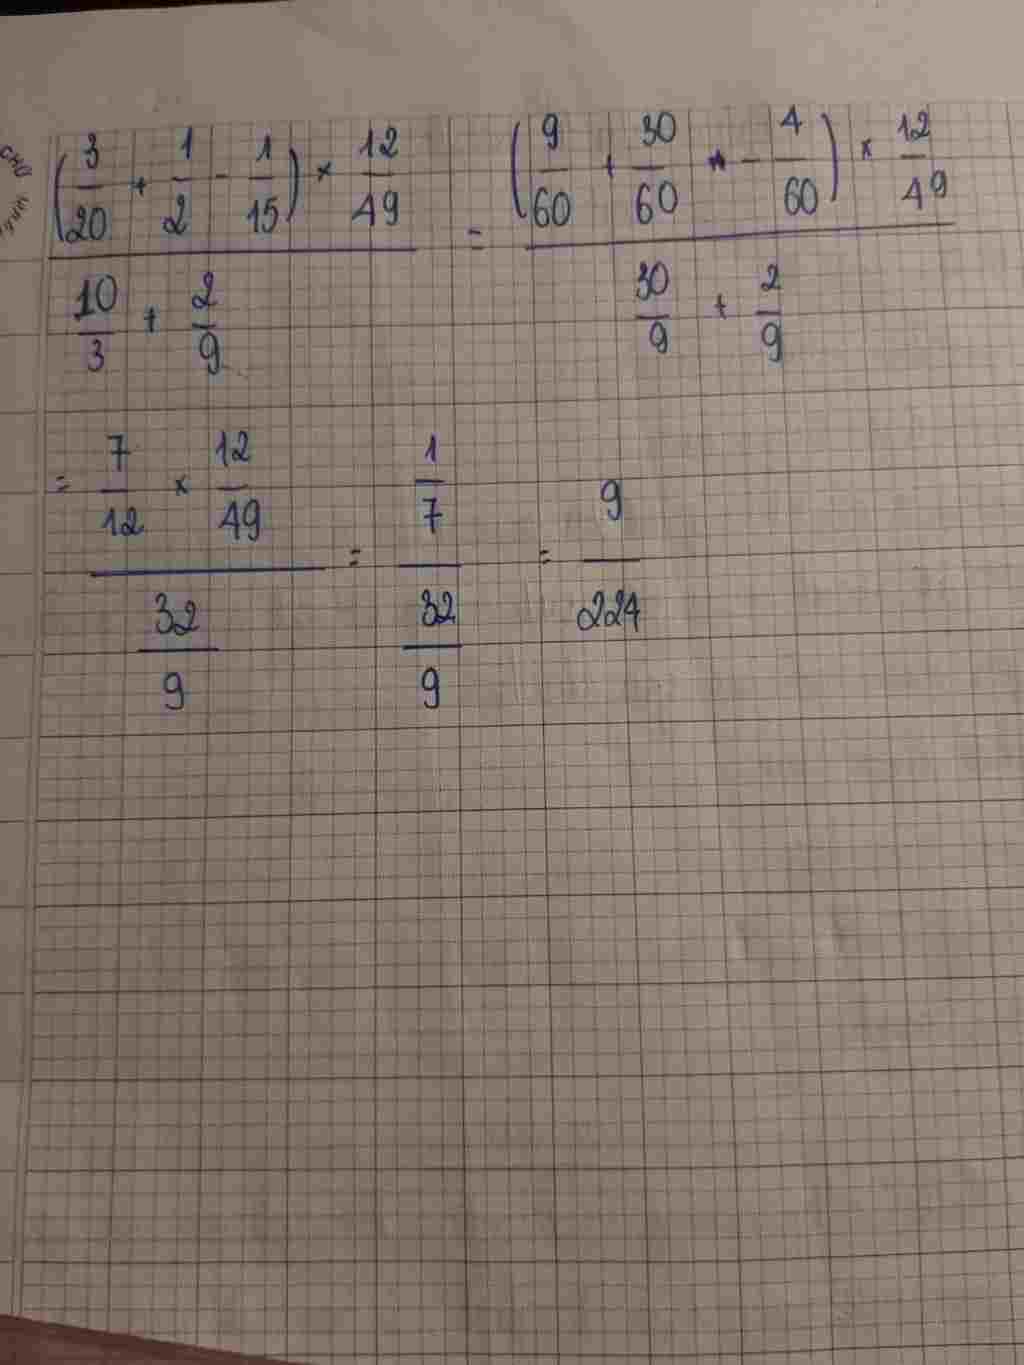 (3/20 + 1/2 - 1/15) × 12/49 / (10/3 + 2/9) = (9/60 + 30/60 - 4/60) × 12/49 / (30/9 + 2/9)
= (7/12 × 12/49) / (32/9) = (1/7) / (32/9) = 9/224